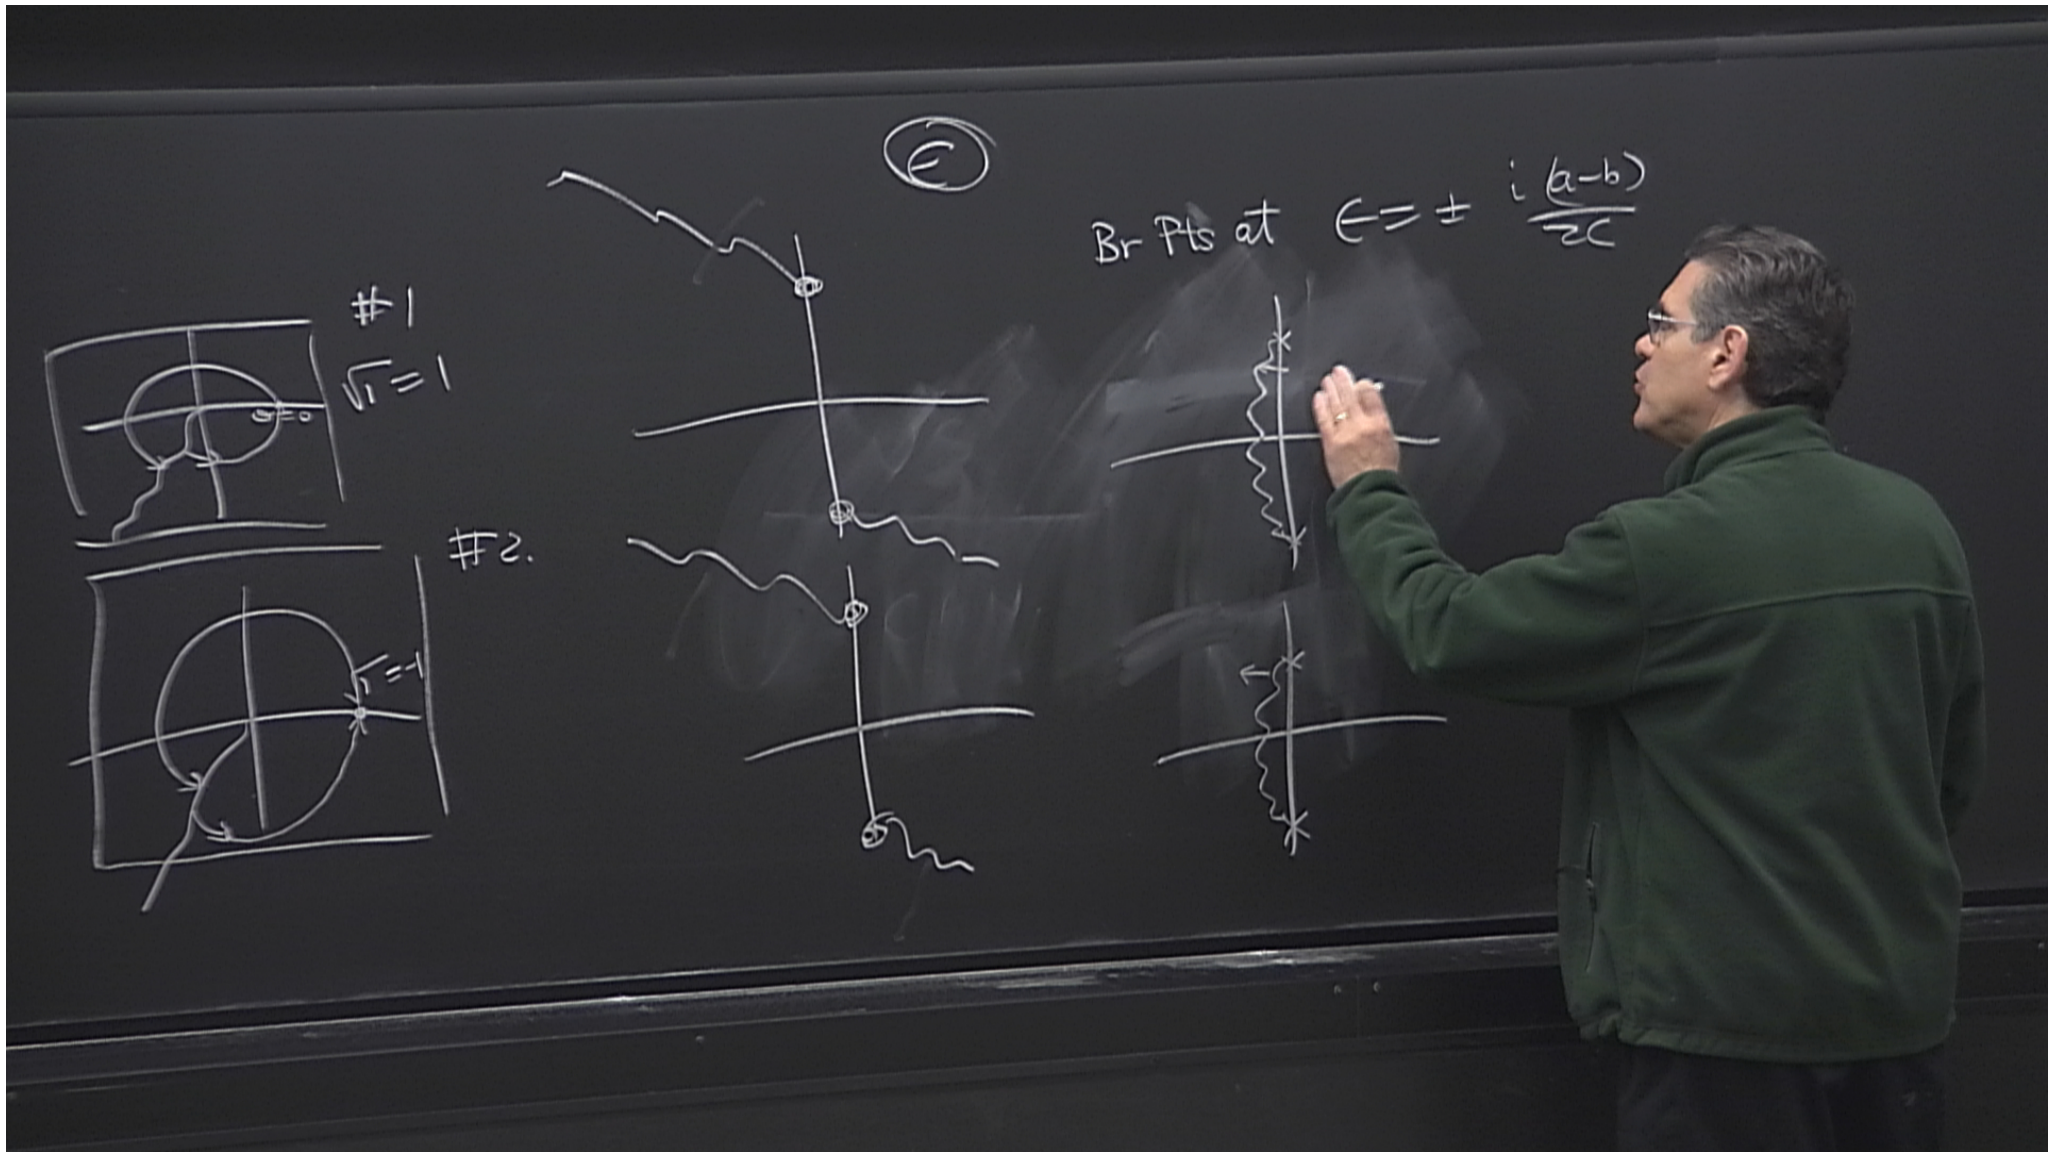 ϵ
Br Pts at ϵ = ± i(a-b)/2c
#1
√1 = 1
θ=0
#2.
√1 = -1